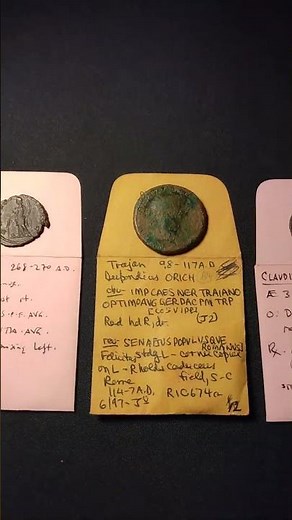 268-270 A.D.
AVG.
ITA-AVG.
left.
Trajan 98-117A.D
Dupondius ORICH
obv IMPCAESNER TRAIANO
OPTIMPAVGGERDACPMTRP
COSVIPP
Rad hd R, dr. (J2)
rev: SENATUSPOPVLUSQVE
ROMANUS
Felicitas stdg L - cornucopiae
on L - R holds caduceus
Rome field, S-C
114-7A.D. RIC674a
6/97-J8
CLAUDI
Æ 3
O: D
Rx-